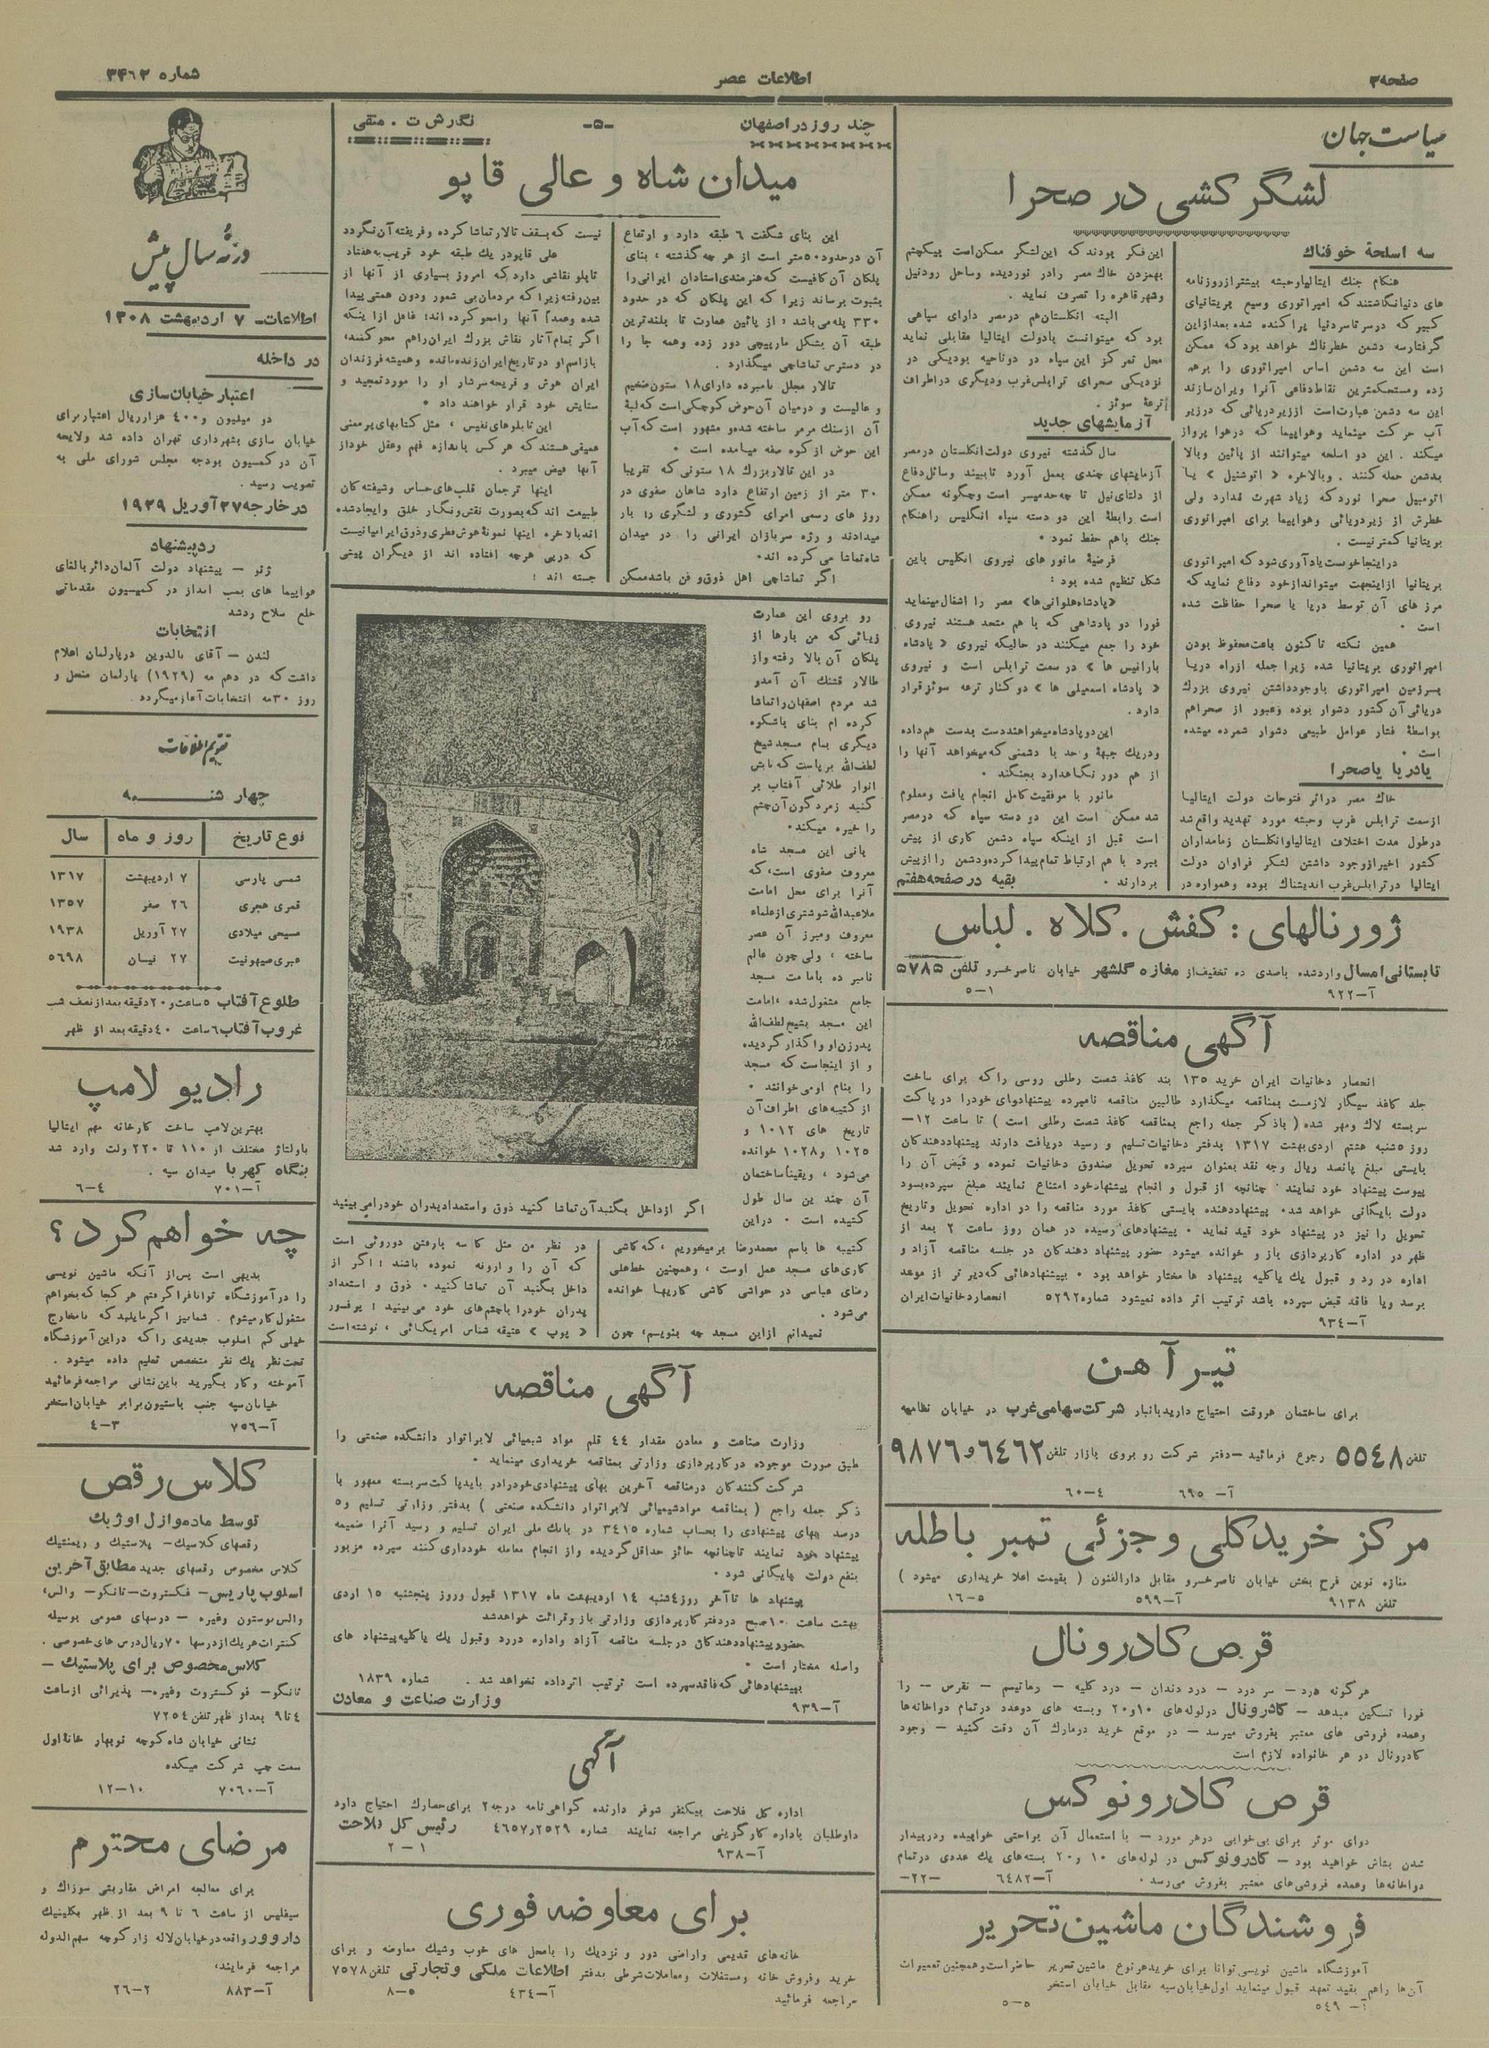 صفحه ۳
اطلاعات عصر
شماره ۳۴۶۳
سیاست جهان
لشگر کشی در صحرا
سه اسلحهٔ خوفناك
هنگام جنك ایتالیا وحبشه بیشتر از روزنامه
های دنیا نگاشتند که امپراتوری وسیع بریتانیای
کبیر که در سرتاسر دنیا پراکنده شده بعد از این
گرفتار سه دشمن خطرناك خواهد بود که ممکن
است این سه دشمن اساس امپراتوری را برهم
زده ومستحکمترین نقاط دفاعی آنرا ویران سازند
این سه دشمن عبارت است از زیر دریائی که در زیر
آب حرکت مینماید وهواپیما که در هوا پرواز
میکند . این دو اسلحه میتوانند از پائین وبالا
بدشمن حمله کنند . وبالاخره « اتوشنیل » یا
اتومبیل صحرا نورد که زیاد شهرت ندارد ولی
خطرش از زیر دریائی وهواپیما برای امپراتوری
بریتانیا کمتر نیست .
در اینجا خوست یادآوری شود که امپراتوری
بریتانیا از اینجهت میتواند از خود دفاع نماید که
مرز های آن توسط دریا یا صحرا حفاظت شده
است .
همین نکته تاکنون باعث محفوظ بودن
امپراتوری بریتانیا شده زیرا حمله از راه دریا
بسرزمین امپراتوری با وجود داشتن نیروی بزرك
دریائی آن کشور دشوار بوده وعبور از صحرا هم
بواسطهٔ فشار عوامل طبیعی دشوار شمرده میشده
است .
یا دریا یا صحرا
خاك مصر در اثر فتوحات دولت ایتالیا
از سمت ترابلس غرب وحبشه مورد تهدید واقع شد
در طول مدت اختلاف ایتالیا وانگلستان زمامداران
کشور اخیر از وجود داشتن لشکر فراوان دولت
ایتالیا در ترابلس غرب اندیشناك بوده وهمواره در
این فکر بودند که این لشگر ممکن است بیکچشم
بهمزدن خاك مصر را در نوردیده وساحل رود نیل
وشهر قاهره را تصرف نماید .
البته انگلستان هم در مصر دارای سپاهی
بود که میتوانست با دولت ایتالیا مقابلی نماید
محل تمرکز این سپاه در دو ناحیه بود یکی در
نزدیکی صحرای ترابلس غرب ودیگری در اطراف
ترعهٔ سوئز .
آزمایشهای جدید
سال گذشته نیروی دولت انگلستان در مصر
آزمایشهای چندی بعمل آورد تا ببیند وسائل دفاع
از دلتای نیل تا چه حد میسر است وچگونه ممکن
است رابطهٔ این دو دسته سپاه انگلیس را هنگام
جنك با هم حفظ نمود .
فرضیهٔ مانور های نیروی انگلیس باین
شکل تنظیم شده بود :
«پادشاه هلوانی ها» مصر را اشغال مینماید
فورا دو پادشاهی که با هم متحد هستند نیروی
خود را جمع میکنند در حالیکه نیروی « پادشاه
بارانیس ها » در سمت ترابلس است و نیروی
« پادشاه اسمعیلی ها » در کنار ترعه سوئز قرار
دارد .
این دو پادشاه میخواهند دست بدست هم داده
ودر یك جبههٔ واحد با دشمنی که میخواهد آنها را
از هم دور نگاهدارد بجنگند .
مانور با موفقیت کامل انجام یافت ومعلوم
شد ممکن است این دو دسته سپاه که در مصر
است قبل از اینکه سپاه دشمن کاری از پیش
ببرد با هم ارتباط تمام پیدا کرده ودشمن را از پیش
بردارند .
بقیه در صفحه هفتم
ژورنالهای : کفش . کلاه . لباس
تابستانی امسال وارد شده باصدی ده تخفیف از مغازه گلشهر خیابان ناصر خسرو تلفن ۵۷۸۵
آ–۹۲۲
۱–۵
آگهی مناقصه
انحصار دخانیات ایران خرید ۱۳۵ بند کاغذ شصت رطلی روسی را که برای ساخت
جلد کاغذ سیگار لازمست بمناقصه میگذارد طالبین مناقصه نامبرده پیشنهادهای خود را در پاکت
سربسته لاك ومهر شده ( باذکر جمله راجع بمناقصه کاغذ شصت رطلی است ) تا ساعت ۱۲–
روز ۵ شنبه هشتم اردی بهشت ۱۳۱۷ بدفتر دخانیات تسلیم و رسید دریافت دارند پیشنهاد دهندگان
بایستی مبلغ پانصد ریال وجه نقد بعنوان سپرده تحویل صندوق دخانیات نموده و قبض آن را
پیوست پیشنهاد خود نمایند . چنانچه از قبول و انجام پیشنهاد خود امتناع نمایند مبلغ سپرده بسود
دولت بایگانی خواهد شد . پیشنهاد دهنده بایستی کاغذ مورد مناقصه را در اداره تحویل وتاریخ
تحویل را نیز در پیشنهاد خود قید نماید . پیشنهادهای رسیده در همان روز ساعت ۲ بعد از
ظهر در اداره کارپردازی باز و خوانده میشود حضور پیشنهاد دهندگان در جلسه مناقصه آزاد و
اداره در رد و قبول یك یا کلیه پیشنهاد ها مختار خواهد بود . بپیشنهادهائی که دیر تر از موعد
برسد ویا فاقد قبض سپرده باشد ترتیب اثر داده نمیشود شماره ۵۲۹۲ انحصار دخانیات ایران
آ–۹۳۴
تیر آهن
برای ساختمان هر وقت احتیاج دارید بانبار شرکت سهامی غرب در خیابان نظامیه
تلفن ۵۵۴۸ رجوع فرمائید – دفتر شرکت رو بروی بازار تلفن ۶۴۶۲ و ۹۸۷۶
آ– ۶۹۵
۴–۶۰
مرکز خرید کلی و جزئی تمبر باطله
مغازه نوین فرح بخش خیابان ناصر خسرو مقابل دارالفنون ( بقیمت اعلا خریداری میشود )
تلفن ۹۱۳۸
آ–۵۹۹
۵–۱۶
قرص کادرونال
هر گونه درد – سر درد – درد دندان – درد کلیه – رماتیسم – نقرس – را
فورا تسکین میدهد – کادرونال در لوله های ۱۰ و ۲۰ وبسته های دو عدد در تمام دواخانه ها
وعمده فروشی های معتبر بفروش میرسد – در موقع خرید در مارك آن دقت کنید – وجود
کادرونال در هر خانواده لازم است
قرص کادرونوکس
دوای موثر برای بی خوابی در هر مورد – با استعمال آن براحتی خوابیده ودر بیدار
شدن بشاش خواهید بود – کادرونوکس در لوله های ۱۰ و ۲۰ بسته های یك عددی در تمام
دواخانه ها وعمده فروشی های معتبر بفروش می رسد .
آ–۶۴۸۲
–۲۲–
فروشندگان ماشین تحریر
آموزشگاه ماشین نویسی توانا برای خرید هر نوع ماشین تحریر حاضر است وهمچنین تعمیرات
آن ها را هم بقید تعهد قبول مینماید اول خیابان سپه مقابل خیابان استخر
آ– ۵۴۹
۵–۵
چند روز در اصفهان
–۵–
نگارش ت . متقی
میدان شاه و عالی قاپو
این بنای شگفت ۶ طبقه دارد و ارتفاع
آن در حدود ۵۰ متر است از هر چه گذشته ، بنای
پلکان آن کافیست که هنرمندی استادان ایرانی را
بثبوت برساند زیرا که این پلکان که در حدود
۳۳۰ پله می باشد ، از پائین عمارت تا بلندترین
طبقه آن بشکل مارپیچی دور زده وهمه جا را
در دسترس تماشاچی میگذارد .
تالار مجلل نامبرده دارای ۱۸ ستون ضخیم
و عالیست و درمیان آن حوض کوچکی است که لبهٔ
آن از سنك مرمر ساخته شده و مشهور است که آب
این حوض از کوه صفه میامده است .
در این تالار بزرك ۱۸ ستونی که تقریبا
۳۰ متر از زمین ارتفاع دارد شاهان صفوی در
روز های رسمی امرای کشوری و لشگری را بار
میدادند و رژه سربازان ایرانی را در میدان
شاه تماشا می کرده اند .
اگر تماشاچی اهل ذوق و فن باشد ممکن
نیست که بسقف تالار تماشا کرده و فریفته آن نگردد
علی قاپو در یك طبقه خود قریب به هفتاد
تابلو نقاشی دارد که امروز بسیاری از آنها از
بین رفته زیرا که مردمان بی شعور ودون همتی پیدا
شده وعمدا آنها را محو کرده اند ؛ غافل از اینکه
اگر تمام آثار نقاش بزرك ایران را هم محو کنند ،
باز اسم او در تاریخ ایران زنده مانده و همیشه فرزندان
ایران هوش و قریحه سرشار او را مورد تمجید و
ستایش خود قرار خواهند داد .
این تابلو های نفیس ، مثل کتابهای پر معنی
عمیقی هستند که هر کس باندازه فهم وعقل خود از
آنها فیض میبرد .
اینها ترجمان قلب های حساس وشیفتگان
طبیعت اند که بصورت نقش و نگار خلق وایجاد شده
اند بالاخره اینها نمونهٔ هوش فطری و ذوق ایرانیانیست
که در پی هر چه افتاده اند از دیگران پیشی
جسته اند !
رو بروی این عمارت
زیبائی که من بارها از
پلکان آن بالا رفته و از
طالار قشنك آن آمد و
شد مردم اصفهان را تماشا
کرده ام بنای باشکوه
دیگری بنام مسجد شیخ
لطف الله بر پاست که تابش
انوار طلائی آفتاب بر
گنبد زمرد گون آن چشم
را خیره میکند .
بانی این مسجد شاه
معروف صفوی است ، که
آنرا برای محل امامت
ملا عبدالله شوشتری از علماء
معروف و مبرز آن عصر
ساخته ، ولی چون عالم
نامبرده بامامت مسجد
جامع مشغول شده ، امامت
این مسجد بشیخ لطف الله
پدر زن او واگذار گردیده
و از اینجاست که مسجد
را بنام او می خوانند .
از کتیبه های اطراف آن
تاریخ های ۱۰۱۲ و
۱۰۲۵ و ۱۰۲۸ خوانده
می شود ، و یقینا ساختمان
آن چندین سال طول
کشیده است . در این
اگر از داخل بگنبد آن تماشا کنید ذوق واستعداد پدران خود را می بینید
کتیبه ها باسم محمدرضا بر میخوریم ، که کاشی
کاری های مسجد عمل اوست ، وهمچنین خط علی
رضای عباسی در حواشی کاشی کاریها خوانده
می شود .
نمیدانم از این مسجد چه بنویسم ، چون
در نظر من مثل کاسه بارفتن دوروئی است
که آن را وارونه نموده باشند ؛ اگر از
داخل بگنبد آن تماشا کنید . ذوق و استعداد
پدران خود را با چشم های خود می بینید ؛ پرفسور
« پوپ » عتیقه شناس امریکائی ، نوشته است
آگهی مناقصه
وزارت صناعت و معادن مقدار ۴۴ قلم مواد شیمیائی لابراتوار دانشکده صنعتی را
طبق صورت موجوده در کارپردازی وزارتی بمناقصه خریداری مینماید .
شرکت کنندگان در مناقصه آخرین بهای پیشنهادی خود را در باید پاکت سربسته ممهور با
ذکر جمله راجع ( بمناقصه مواد شیمیائی لابراتوار دانشکده صنعتی ) بدفتر وزارتی تسلیم و ۵
درصد بهای پیشنهادی را بحساب شماره ۳۴۱۵ در بانك ملی ایران تسلیم و رسید آنرا ضمیمه
پیشنهاد خود نمایند تا چنانچه حائز حداقل گردیده و از انجام معامله خودداری کنند سپرده مزبور
بنفع دولت بایگانی شود .
پیشنهاد ها تا آخر روز ۴ شنبه ۱۴ اردیبهشت ماه ۱۳۱۷ قبول وروز پنجشنبه ۱۵ اردی
بهشت ساعت ۱۰ صبح در دفتر کارپردازی وزارتی باز وقرائت خواهد شد
حضور پیشنهاد دهندگان در جلسه مناقصه آزاد واداره در رد وقبول یك یا کلیه پیشنهاد های
واصله مختار است .
بپیشنهادهائی که فاقد سپرده است ترتیب اثر داده نخواهد شد .
شماره ۱۸۳۹
آ–۹۳۹
وزارت صناعت و معادن
آگهی
اداره کل فلاحت بیکنفر شوفر دارنده گواهی نامه درجه ۲ برای حصارك احتیاج دارد
داوطلبان باداره کارگزینی مراجعه نمایند شماره ۴۶۵۷٫۲۵۲۹ رئیس کل فلاحت
آ–۹۳۸
۱–۲
برای معاوضه فوری
خانه های قدیمی واراضی دور و نزدیك را بامحل های خوب وشیك معاوضه و برای
خرید وفروش خانه ومستغلات ومعاملات شرطی بدفتر اطلاعات ملکی و تجارتی تلفن ۷۵۷۸
مراجعه فرمائید
آ–۴۳۴
۵–۸
ده سال پیش
اطلاعات– ۷ اردیبهشت ۱۳۰۸
در داخله
اعتبار خیابان سازی
دو میلیون و ۴۰۰ هزار ریال اعتبار برای
خیابان سازی بشهرداری تهران داده شد ولایحه
آن در کمسیون بودجه مجلس شورای ملی به
تصویب رسید .
در خارجه ۲۷ آوریل ۱۹۲۹
رد پیشنهاد
ژنو – پیشنهاد دولت آلمان دائر بالغای
هواپیما های بمب انداز در کمیسیون مقدماتی
خلع سلاح رد شد
انتخابات
لندن – آقای بالدوین در پارلمان اعلام
داشت که در دهم مه (۱۹۲۹) پارلمان منحل و
روز ۳۰ مه انتخابات آغاز میگردد .
تقویم اطلاعات
چهار شنبه
نوع تاریخ | روز و ماه | سال
شمسی پارسی | ۷ اردیبهشت | ۱۳۱۷
قمری هجری | ۲۶ صفر | ۱۳۵۷
مسیحی میلادی | ۲۷ آوریل | ۱۹۳۸
عبری صیهونیت | ۲۷ نیسان | ۵۶۹۸
طلوع آفتاب ۵ ساعت و ۲۰ دقیقه بعد از نصف شب
غروب آفتاب ۶ ساعت ۴۰ دقیقه بعد از ظهر
رادیو لامپ
بهترین لامپ ساخت کارخانه مهم ایتالیا
باولتاژ مختلف از ۱۱۰ تا ۲۲۰ ولت وارد شد
بنگاه کهربا میدان سپه .
آ–۷۰۱
۴–۶
چه خواهم کرد ؟
بدیهی است پس از آنکه ماشین نویسی
را در آموزشگاه توانا فرا گرفتم هر کجا که بخواهم
مشغول کار میشوم . شما نیز اگر مایلید که با مخارج
خیلی کم اسلوب جدیدی را که در این آموزشگاه
تحت نظر یك نفر متخصص تعلیم داده میشود .
آموخته وکار بگیرید باین نشانی مراجعه فرمائید
خیابان سپه جنب پاستیون برابر خیابان استخر
آ–۷۵۶
۳–۴
کلاس رقص
توسط مادموازل اوژیك
رقصهای کلاسیك – پلاستیك و ریمنتیك
کلاس مخصوص رقصهای جدید مطابق آخرین
اسلوب پاریس – فکستروت – تانگو – والس ،
والس بوستون وغیره – درسهای عمومی بوسیله
کنترات هر یك از درسها ۷۰ ریال درس های خصوصی .
کلاس مخصوص برای پلاستیك –
تانگو – فوکستروت وغیره – پذیرائی از ساعت
۴ تا ۹ بعد از ظهر تلفن ۷۲۵۴
نشانی خیابان شاه کوچه نوبهار خانهٔ اول
سمت چپ شرکت میکده
آ–۷۰۶۰
۱۰–۱۲
مرضای محترم
برای معالجه امراض مقاربتی سوزاك و
سیفلیس از ساعت ۶ تا ۹ بعد از ظهر بکلینیك
داروور واقعه در خیابان لاله زار کوچه سهم الدوله
مراجعه فرمایند ،
آ–۸۸۳
۲–۲۶